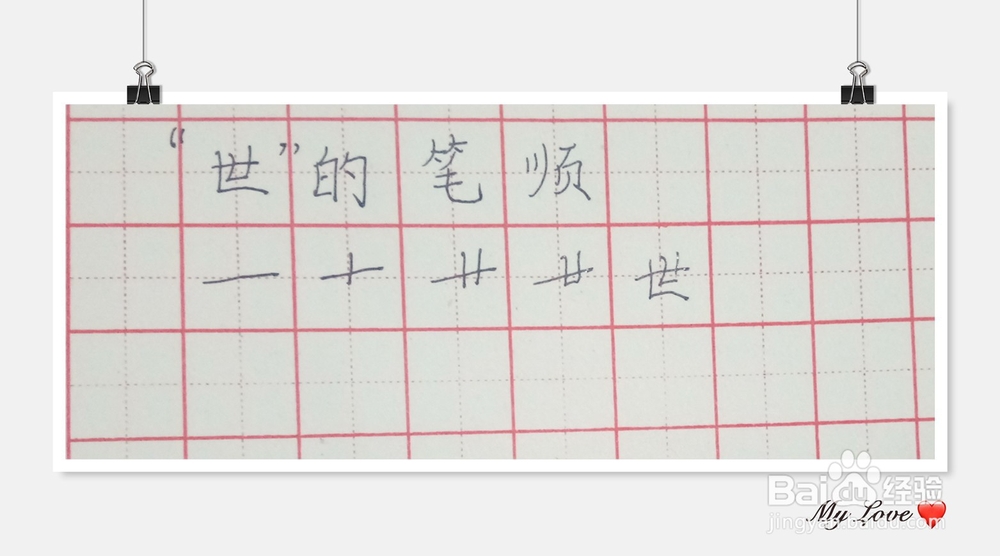 “世”的笔顺
一 十 卄 廿 世
Baidu经验
jingyan.baidu.com
My Love